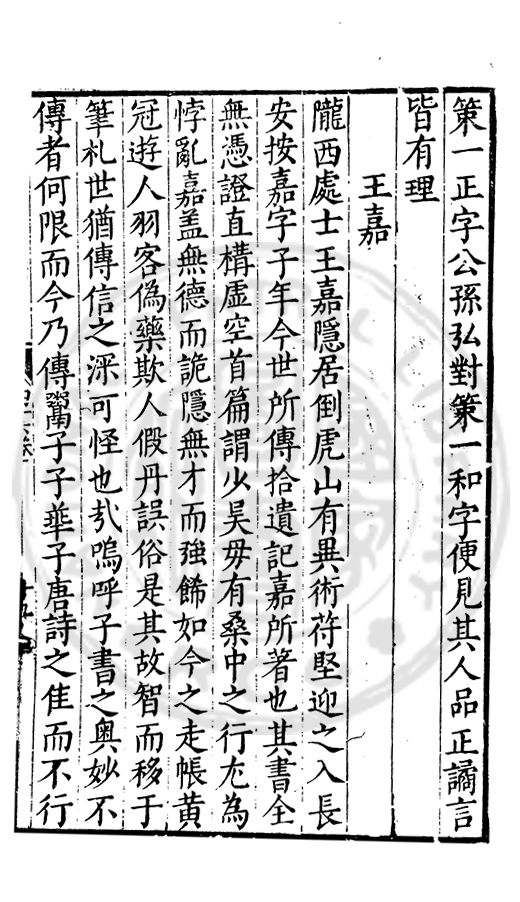 策一正字公孫弘對策一和字便見其人品正譎言
皆有理
王嘉
隴西處士王嘉隱居倒虎山有異術苻堅迎之入長
安按嘉字子年今世所傳拾遺記嘉所著也其書全
無憑證直構虛空首篇謂少昊母有桑中之行尤為
悖亂嘉盖無德而詭隱無才而強餙如今之走帳黄
冠遊人羽客偽藥欺人假丹誤俗是其故智而移于
筆札世猶傳信之深可怪也㢤嗚呼子書之奥妙不
傳者何限而今乃傳鬻子子華子唐詩之佳而不行